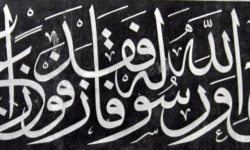 الله ورسوله فقد فاز فوزا